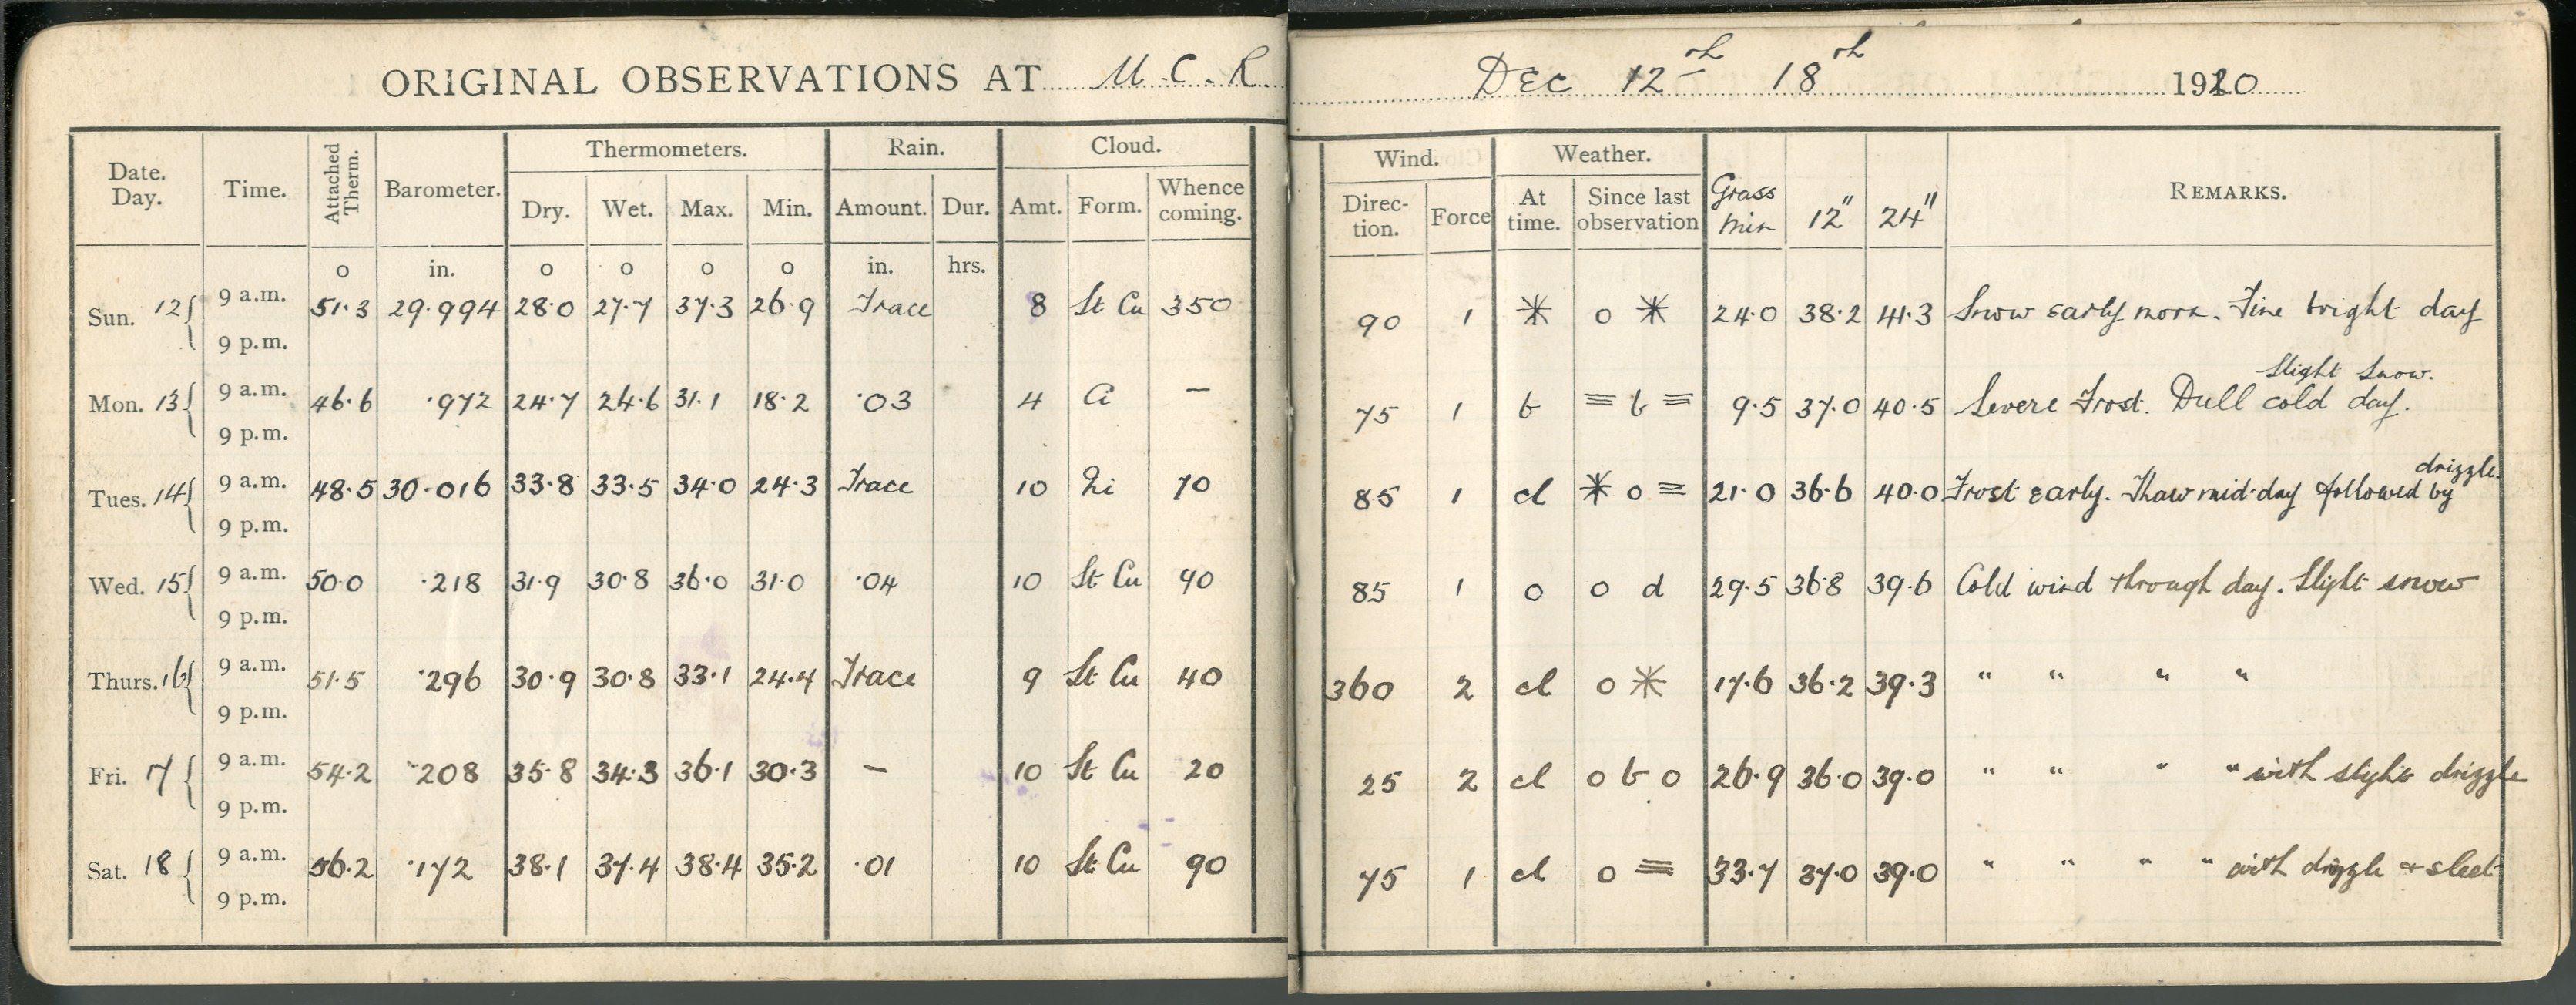 ORIGINAL OBSERVATIONS AT M.C.R. DEC 12th 18th 1920
Date. Day. Time. Attached Therm. Barometer. Thermometers. Rain. Cloud. Wind. Weather. Grass min 12" 24" REMARKS.
Dry. Wet. Max. Min. Amount. Dur. Amt. Form. Whence coming. Direc-tion. Force At time. Since last observation
o in. o o o o in. hrs.
Sun. 12 9 a.m. 51.3 29.994 28.0 27.7 37.3 26.9 Trace 8 St Cu 350 90 1 * o * 24.0 38.2 41.3 Snow early morn. Fine bright day
9 p.m.
Mon. 13 9 a.m. 46.6 .972 24.7 24.6 31.1 18.2 .03 4 Ci — 75 1 b ≡ b ≡ 9.5 37.0 40.5 Severe Frost. Dull cold day. Slight Snow.
9 p.m.
Tues. 14 9 a.m. 48.5 30.016 33.8 33.5 34.0 24.3 Trace 10 Ni 70 85 1 cl * o = 21.0 36.6 40.0 Frost early. Thaw mid-day followed by drizzle.
9 p.m.
Wed. 15 9 a.m. 50.0 .218 31.9 30.8 36.0 31.0 .04 10 St Cu 90 85 1 o o d 29.5 36.8 39.6 Cold wind through day. Slight snow
9 p.m.
Thurs. 16 9 a.m. 51.5 .296 30.9 30.8 33.1 24.4 Trace 9 St Cu 40 360 2 cl o * 17.6 36.2 39.3 " " " "
9 p.m.
Fri. 17 9 a.m. 54.2 .208 35.8 34.3 36.1 30.3 — 10 St Cu 20 25 2 cl o b o 26.9 36.0 39.0 " " " " with slight drizzle
9 p.m.
Sat. 18 9 a.m. 56.2 .172 38.1 37.4 38.4 35.2 .01 10 St Cu 90 75 1 cl o ≡ 33.7 37.0 39.0 " " " " with drizzle & sleet
9 p.m.